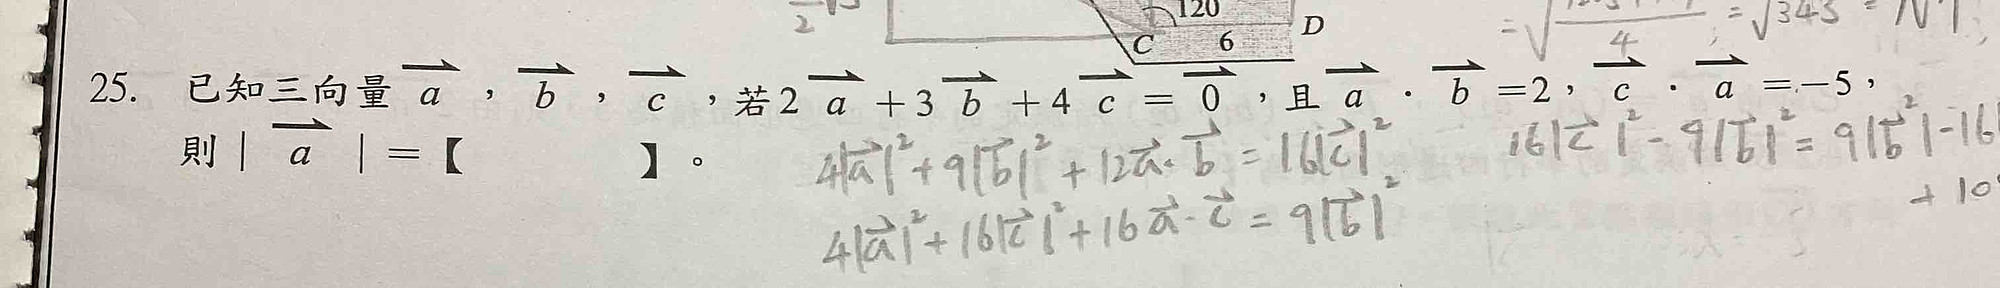 120
C 6 D
2
4
= √343 =
25. 已知三向量 a⃗ , b⃗ , c⃗ , 若 2 a⃗ + 3 b⃗ + 4 c⃗ = 0⃗ , 且 a⃗ · b⃗ = 2 , c⃗ · a⃗ = -5 ,
則 | a⃗ | = 【 】。
4|a⃗|² + 9|b⃗|² + 12a⃗·b⃗ = 16|c⃗|²
4|a⃗|² + 16|c⃗|² + 16a⃗·c⃗ = 9|b⃗|²
16|c⃗|² - 9|b⃗|² = 9|b⃗²| - 16|
+ 10